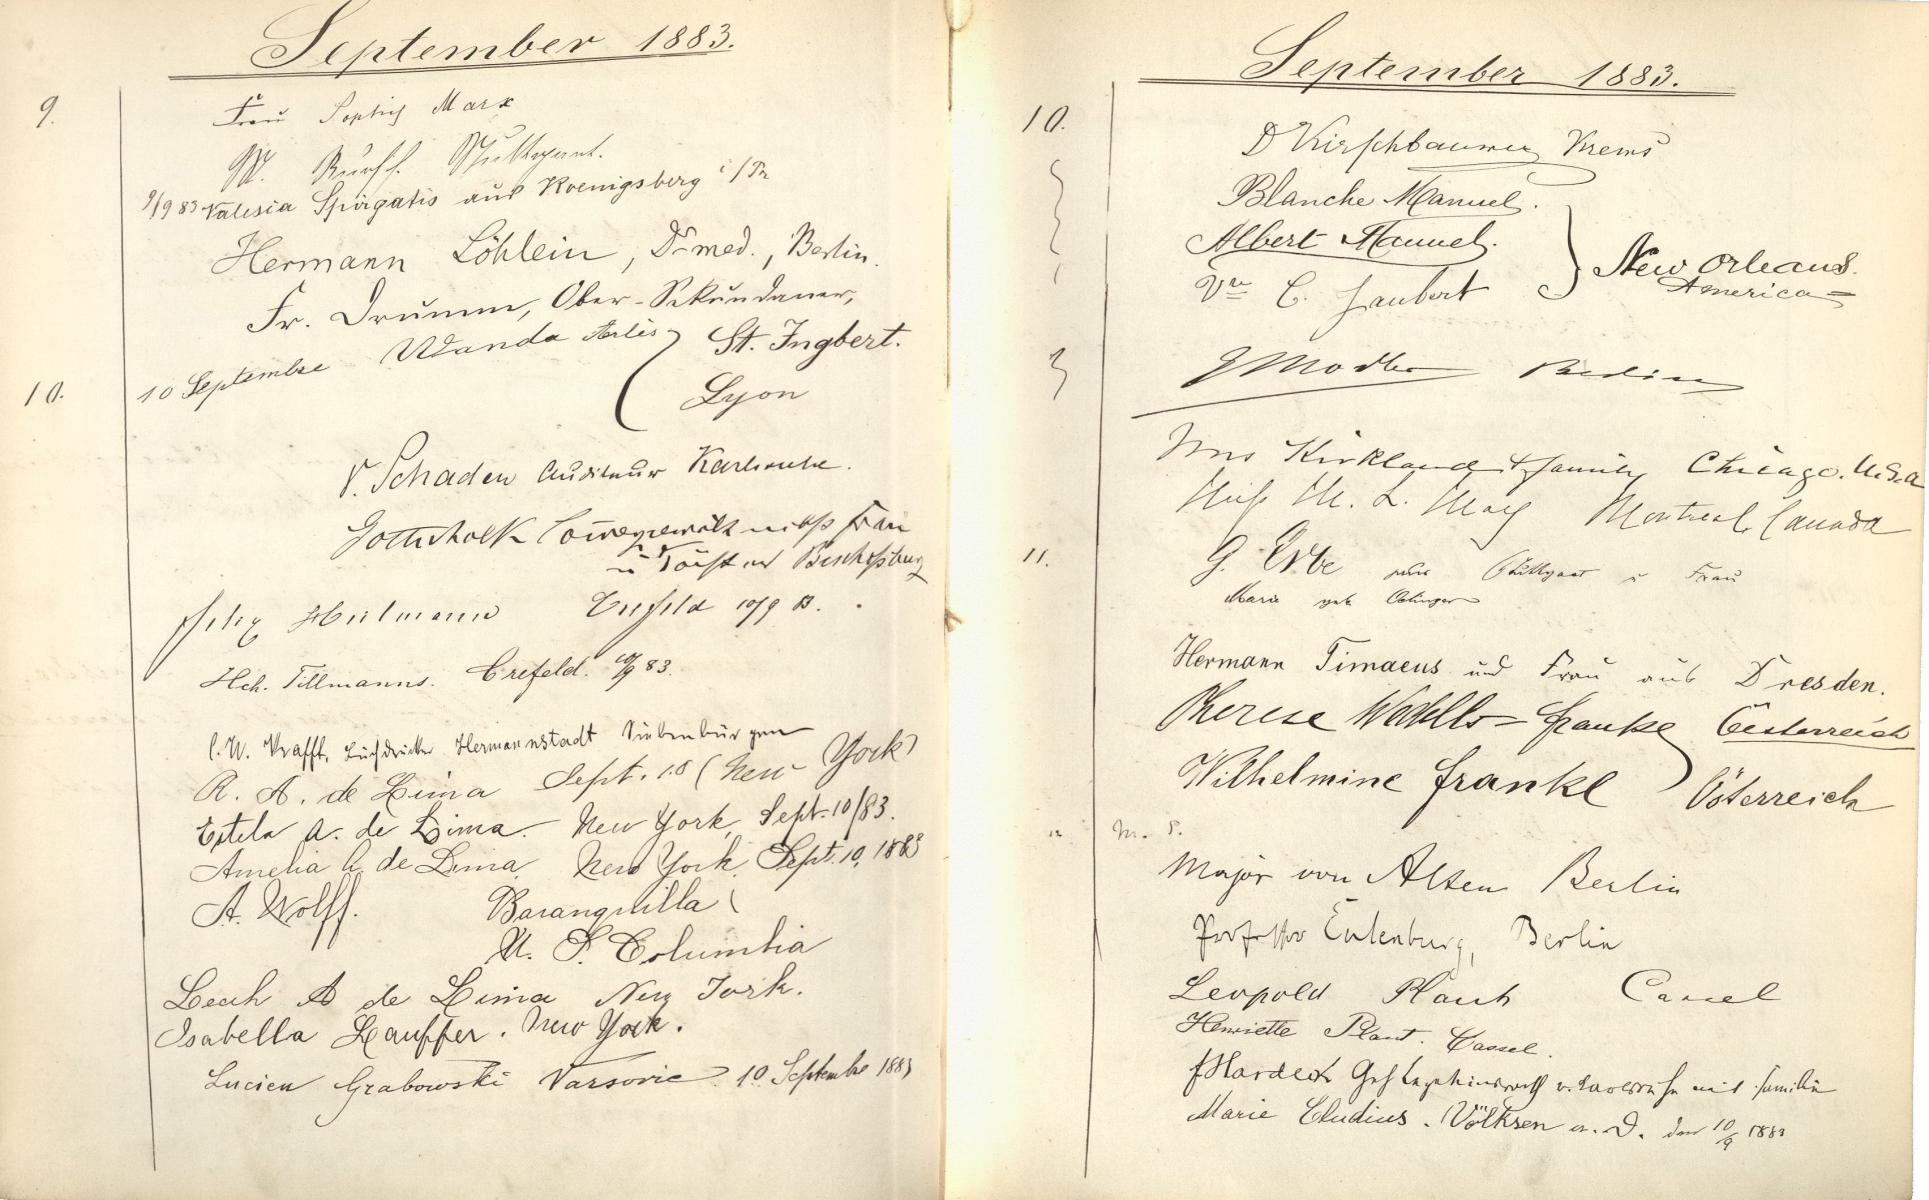 September 1883.
9.
Frau Sophie Marx
Stuttgart.
9/9 83 Valesia Spirgatis aus Koenigsberg i/Pr
Hermann Löhlein, Dr med., Berlin.
Fr. Drumm, Ober-Sekundaner,
St. Ingbert.
10.
10 Septembre Wanda Arlès
Lyon
v. Schaden Auditeur Karlsruhe.
Gottschalk nebst Frau
u Bischofsburg
Felix Heilmann Crefeld 10/9 83.
Hch. Tillmanns. Crefeld. 10/9 83.
C. W. Krafft, Buchdrucker Hermannstadt Siebenbürgen
R. A. de Lima Sept. 10 (New York)
Estela A. de Lima. New York, Sept. 10/83.
Amelia A. de Lima. New York. Sept. 10, 1883
A. Wolff. Baranquilla
U. S. Columbia
Leah A de Lima New York.
Isabella Lauffer. New York.
Lucien Grabowski Varsovie. 10 Septembre 1883
September 1883.
10.
D Kirschbaumer Krems
Blanche Manuel.
Albert Manuel.
Vve C. Jaubert
New Orleans.
America
Berlin
Mrs Kirkland & family Chicago. U.S.A
Miss M. L. May Montreal, Canada
11.
G. Erbe aus Stuttgart u Frau
Marie geb
Hermann Timaeus und Frau aus Dresden.
Therese Franke Oesterreich
Wilhelmine Frankl Österreich
Major von Alten Berlin
Professor Eulenburg, Berlin
Leopold Plaut Cassel
Henriette Plaut. Cassel.
FHardeck v. Carlsruhe mit Familie
Marie Cludius. Völksen a. D. den 10/9 1883